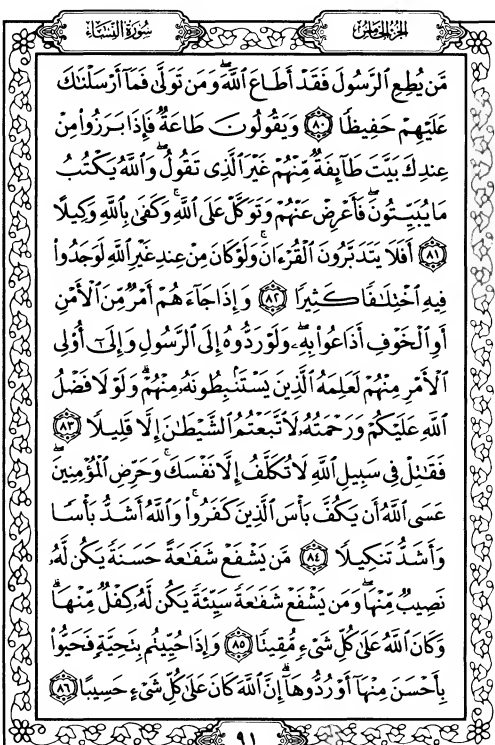 سُورَةُ النِّسَاءِ الجُزْءُ الخَامِسُ
مَّن يُطِعِ ٱلرَّسُولَ فَقَدْ أَطَاعَ ٱللَّهَۖ وَمَن تَوَلَّىٰ فَمَآ أَرْسَلْنَٰكَ
عَلَيْهِمْ حَفِيظًا ٨٠ وَيَقُولُونَ طَاعَةٌ فَإِذَا بَرَزُوا۟ مِنْ
عِندِكَ بَيَّتَ طَآئِفَةٌ مِّنْهُمْ غَيْرَ ٱلَّذِى تَقُولُۖ وَٱللَّهُ يَكْتُبُ
مَا يُبَيِّتُونَۖ فَأَعْرِضْ عَنْهُمْ وَتَوَكَّلْ عَلَى ٱللَّهِۚ وَكَفَىٰ بِٱللَّهِ وَكِيلًا
٨١ أَفَلَا يَتَدَبَّرُونَ ٱلْقُرْءَانَۚ وَلَوْ كَانَ مِنْ عِندِ غَيْرِ ٱللَّهِ لَوَجَدُوا۟
فِيهِ ٱخْتِلَٰفًا كَثِيرًا ٨٢ وَإِذَا جَآءَهُمْ أَمْرٌ مِّنَ ٱلْأَمْنِ
أَوِ ٱلْخَوْفِ أَذَاعُوا۟ بِهِۦۖ وَلَوْ رَدُّوهُ إِلَى ٱلرَّسُولِ وَإِلَىٰٓ أُو۟لِى
ٱلْأَمْرِ مِنْهُمْ لَعَلِمَهُ ٱلَّذِينَ يَسْتَنۢبِطُونَهُۥ مِنْهُمْۗ وَلَوْلَا فَضْلُ
ٱللَّهِ عَلَيْكُمْ وَرَحْمَتُهُۥ لَٱتَّبَعْتُمُ ٱلشَّيْطَٰنَ إِلَّا قَلِيلًا ٨٣
فَقَٰتِلْ فِى سَبِيلِ ٱللَّهِ لَا تُكَلَّفُ إِلَّا نَفْسَكَۚ وَحَرِّضِ ٱلْمُؤْمِنِينَۖ
عَسَى ٱللَّهُ أَن يَكُفَّ بَأْسَ ٱلَّذِينَ كَفَرُوا۟ۚ وَٱللَّهُ أَشَدُّ بَأْسًا
وَأَشَدُّ تَنكِيلًا ٨٤ مَّن يَشْفَعْ شَفَٰعَةً حَسَنَةً يَكُن لَّهُۥ
نَصِيبٌ مِّنْهَاۖ وَمَن يَشْفَعْ شَفَٰعَةً سَيِّئَةً يَكُن لَّهُۥ كِفْلٌ مِّنْهَاۗ
وَكَانَ ٱللَّهُ عَلَىٰ كُلِّ شَىْءٍ مُّقِيتًا ٨٥ وَإِذَا حُيِّيتُم بِتَحِيَّةٍ فَحَيُّوا۟
بِأَحْسَنَ مِنْهَآ أَوْ رُدُّوهَآۗ إِنَّ ٱللَّهَ كَانَ عَلَىٰ كُلِّ شَىْءٍ حَسِيبًا ٨٦
٩١